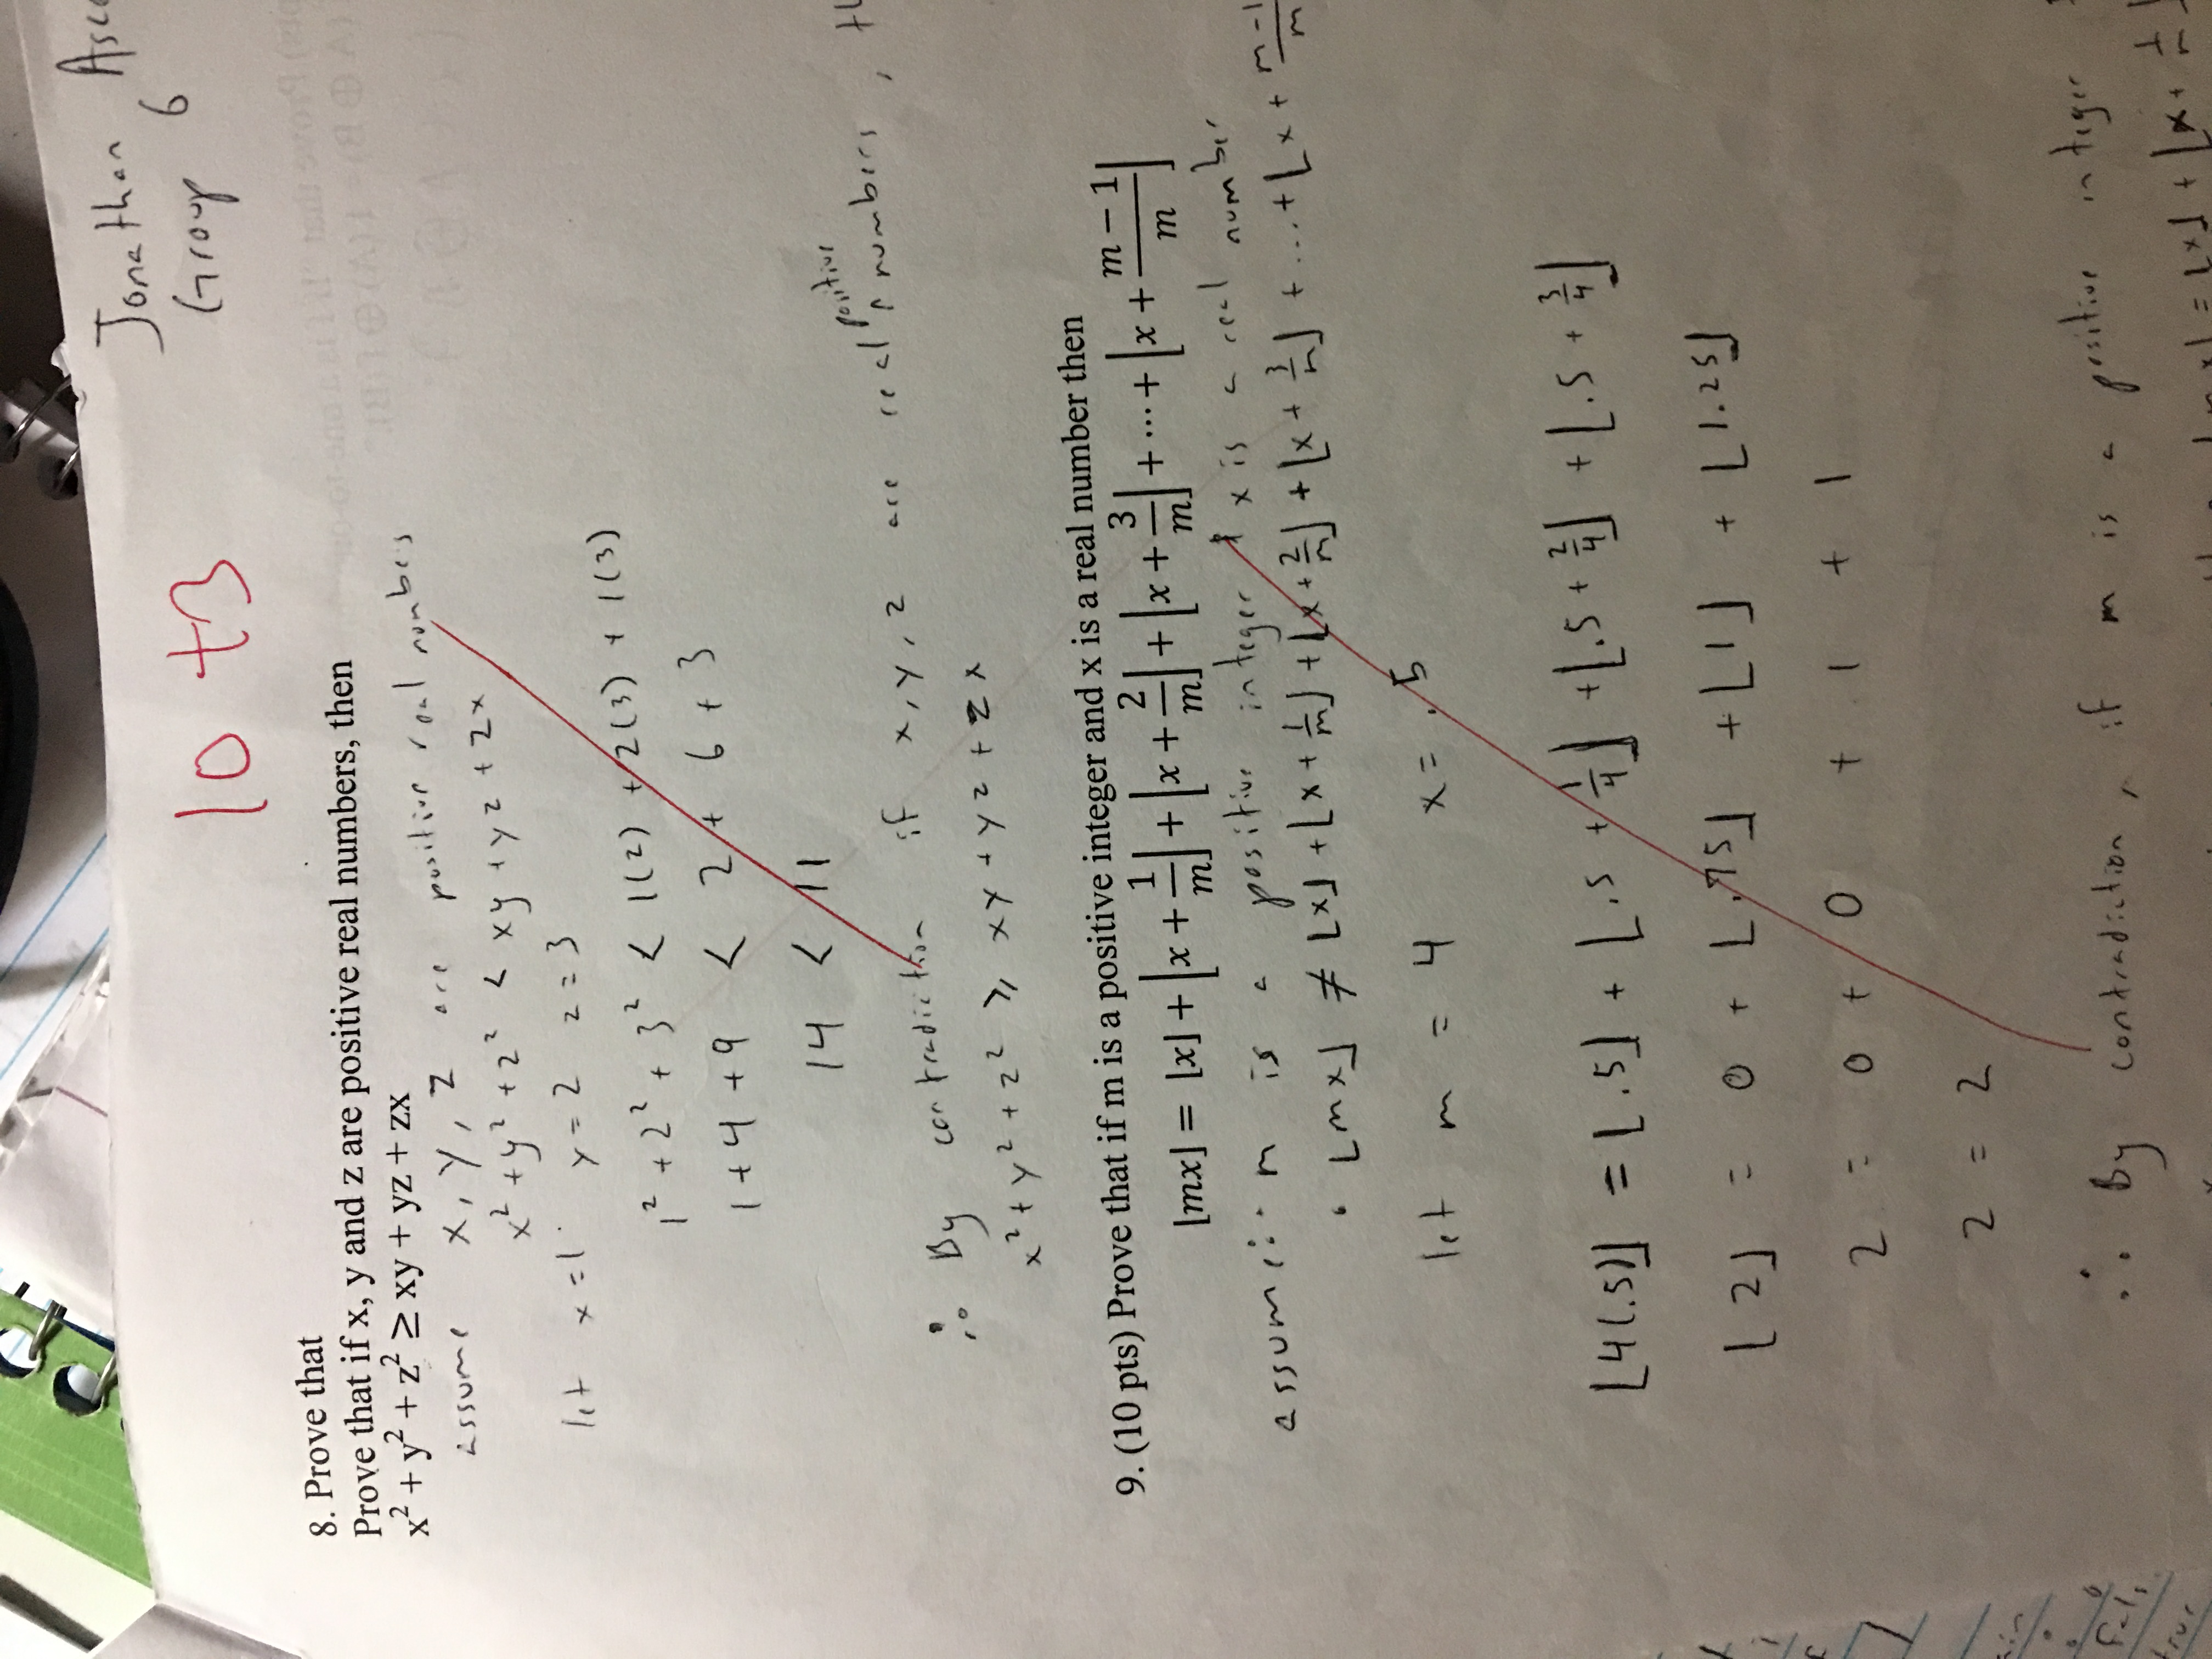 Jonathan
Group 6
10 +3
8. Prove that
Prove that if x, y and z are positive real numbers, then
x² + y² + z² ≥ xy + yz + zx
assume x, y, z are positive real numbers
x² + y² + z² < xy + yz + zx
let x = 1 y = 2 z = 3
1² + 2² + 3² < 1(2) + 2(3) + 1(3)
1 + 4 + 9 < 2 + 6 + 3
14 < 11
positive
∴ By contradiction if x, y, z are real ^ numbers,
x² + y² + z² ≥ xy + yz + zx
9. (10 pts) Prove that if m is a positive integer and x is a real number then
⌊mx⌋ = ⌊x⌋ + ⌊x + 1/m⌋ + ⌊x + 2/m⌋ + ⌊x + 3/m⌋ + ⋯ + ⌊x + (m − 1)/m⌋
assume: m is a positive integer & x is a real number
• ⌊mx⌋ ≠ ⌊x⌋ + ⌊x + 1/m⌋ + ⌊x + 2/m⌋ + ⌊x + 3/m⌋ + ... + ⌊x + (m-1)/m
let m = 4 x = .5
⌊4(.5)⌋ = ⌊.5⌋ + ⌊.5 + 1/4⌋ + ⌊.5 + 2/4⌋ + ⌊.5 + 3/4⌋
⌊2⌋ = 0 + ⌊.75⌋ + ⌊1⌋ + ⌊1.25⌋
2 = 0 + 0 + 1 + 1
2 = 2
∴ By contradiction, if m is a positive integer
= ⌊x⌋ + ⌊x + 1/m